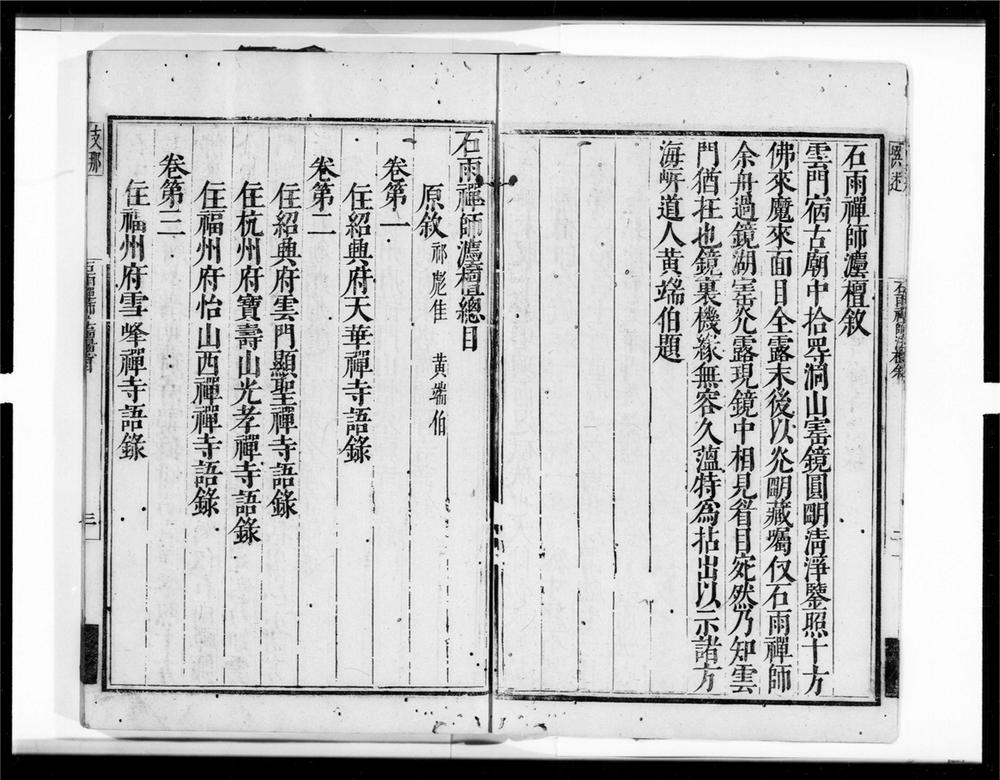 石雨禪師灋檀敘
雲門宿古廟中拾得洞山寶鏡圓朙淸淨鑒照十方
佛來魔來面目全露末後以炗朙藏囑仅石雨禪師
余舟過鏡湖寶炗露現鏡中相見眉目宛然乃知雲
門猶在也鏡裏機緣無容久蘊特為拈出以示諸方
海岸道人黄端伯題
石雨禪師灋檀總目
原敘 祁彪佳 黄端伯
卷第一
住紹興府天華禪寺語錄
卷第二
住紹興府雲門顯聖禪寺語錄
住杭州府寶壽山光孝禪寺語錄
住福州府怡山西禪禪寺語錄
卷第三
住福州府雪峰禪寺語錄
支那
三